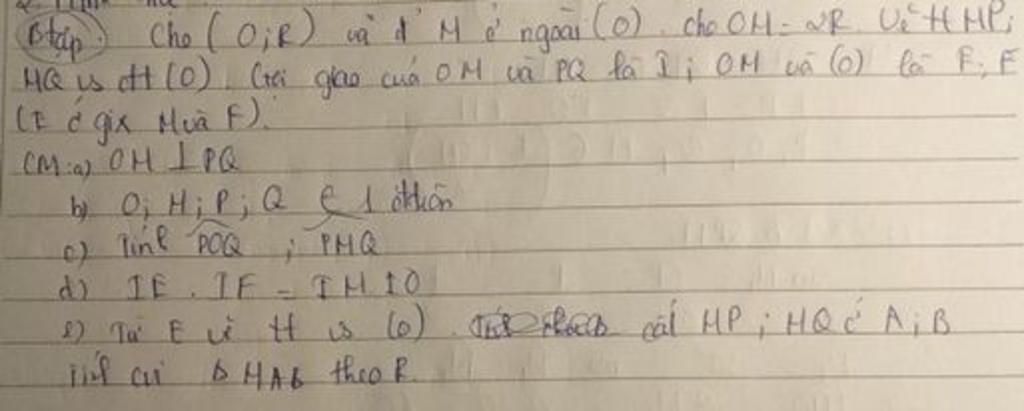 Btập. Cho (O;R) và đ' M ở ngoài (O). cho OM = 2R. Vẽ tt MP;
MQ vs đtt (O). Gọi giao của OM và PQ là I; OM và (O) là E; F
(E ở giữa M và F).
CM: a) OM ⊥ PQ
b) O; M; P; Q ∈ 1 đtròn
c) Tính POQ ; PMQ
d) IE . IF = IM IO
e) Từ E vẽ tt vs (O) cắt MP; MQ ở A; B
Tính cvi Δ MAB theo R.